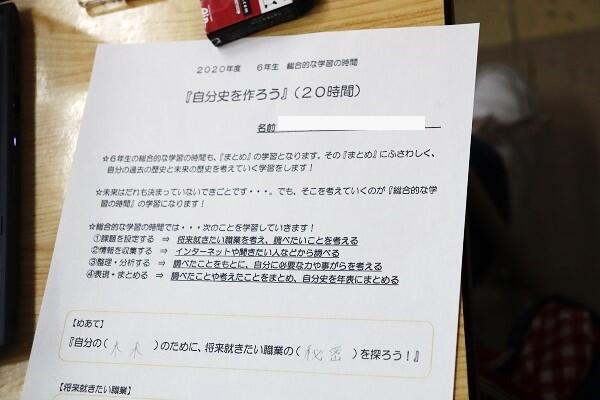 2020年度　6年生　総合的な学習の時間
『自分史を作ろう』（20時間）
名前
☆6年生の総合的な学習の時間も、『まとめ』の学習となります。その『まとめ』にふさわしく、
自分の過去の歴史と未来の歴史を考えていく学習をします！
☆未来はだれも決まっていないできごとです・・・。でも、そこを考えていくのが『総合的な学
習の時間』の学習になります！
☆総合的な学習の時間では・・・次のことを学習していきます！
①課題を設定する ⇒ 将来就きたい職業を考え、調べたいことを考える
②情報を収集する ⇒ インターネットや聞きたい人などから調べる
③整理・分析する ⇒ 調べたことをもとに、自分に必要な力や事がらを考える
④表現・まとめる ⇒ 調べたことや考えたことをまとめ、自分史を年表にまとめる
【めあて】
『自分の（　）のために、将来就きたい職業の（秘密）を探ろう！』
【将来就きたい職業】